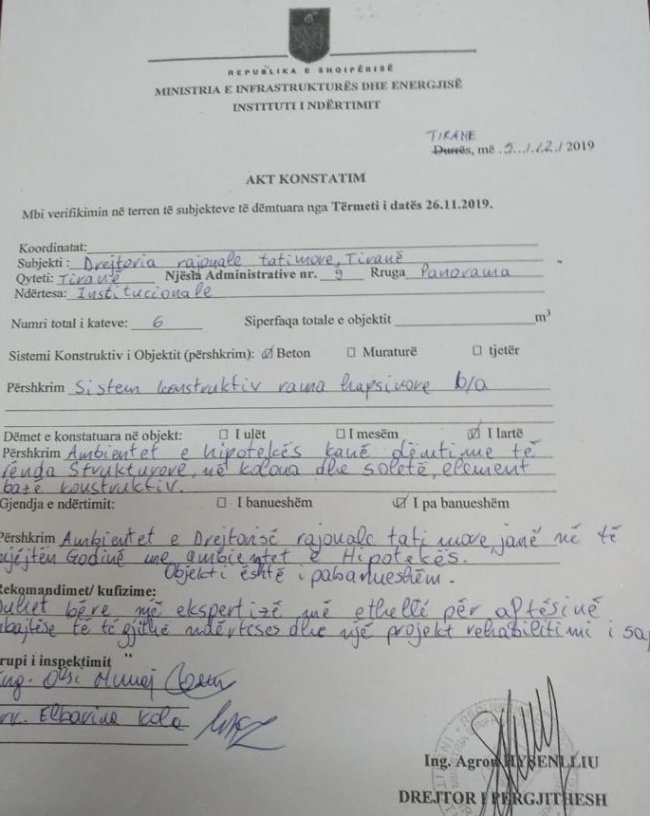 REPUBLIKA E SHQIPËRISË
MINISTRIA E INFRASTRUKTURËS DHE ENERGJISË
INSTITUTI I NDËRTIMIT
TIRANE
Durrës, më 5./12./2019
AKT KONSTATIM
Mbi verifikimin në terren të subjekteve të dëmtuara nga Tërmeti i datës 26.11.2019.
Koordinatat:
Subjekti : Drejtoria rajonale tatimore, Tiranë
Qyteti: Tiranë Njësia Administrative nr. 9 Rruga Panorama
Ndërtesa: Institucionale
Numri total i kateve: 6 Siperfaqa totale e objektit m³
Sistemi Konstruktiv i Objektit (përshkrim): ☑ Beton ☐ Muraturë ☐ tjetër
Përshkrim Sistem konstruktiv rama hapsinore b/a
Dëmet e konstatuara në objekt: ☐ I ulët ☐ I mesëm ☑ I lartë
Përshkrim Ambientet e hipotekës kanë dëmtime të
rënda Strukturore, në kolona dhe soletë, element
bazë konstruktiv.
Gjendja e ndërtimit: ☐ I banueshëm ☑ I pa banueshëm
Përshkrim Ambientet e Drejtorisë rajonale tatimore, janë në të
njëjtën Godinë me ambientet e Hipotekës.
Objekti është i pabanueshëm.
Rekomandimet/ kufizime:
Duhet bëre një ekspertizë më e thellë për aftësinë
mbajtëse të të gjithë ndërteses dhe një projekt rehabilitimi i saj
Grupi i inspektimit
Ing.
Elbarina Kola
Ing. Agron HYSENLLIU
DREJTOR I PËRGJITHESH